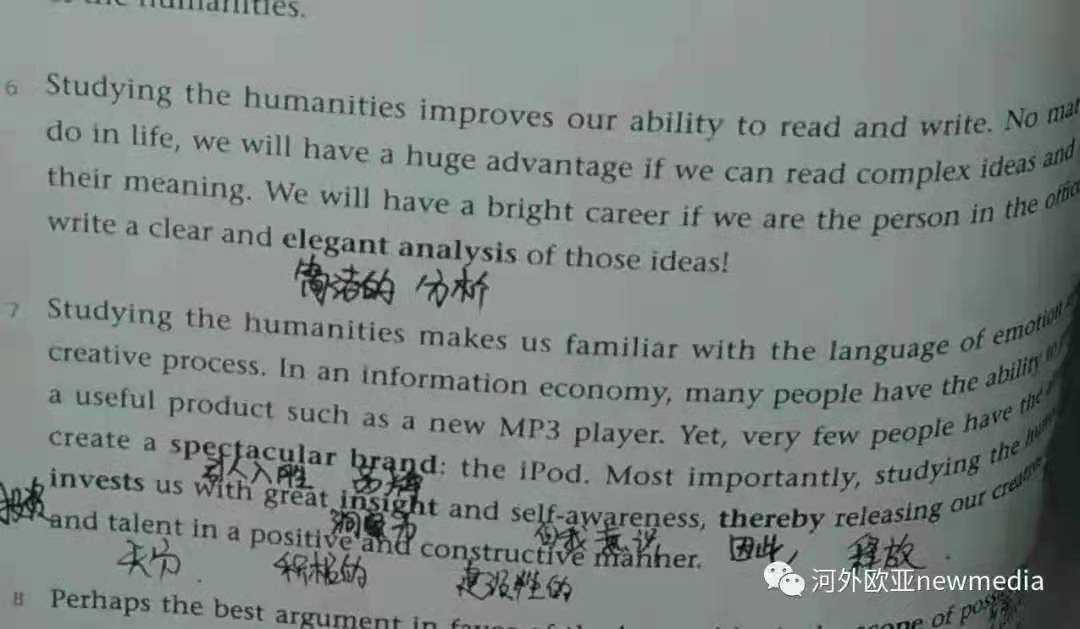 the humanities.
6 Studying the humanities improves our ability to read and write. No
do in life, we will have a huge advantage if we can read complex ideas and
their meaning. We will have a bright career if we are the person in the
write a clear and elegant analysis of those ideas!
简洁的 分析
7 Studying the humanities makes us familiar with the language of emotion
creative process. In an information economy, many people have the ability to
a useful product such as a new MP3 player. Yet, very few people have the
create a spectacular brand: the iPod. Most importantly, studying the
引人入胜 品牌
invests us with great insight and self-awareness, thereby releasing our
投资 洞察力 自我意识 因此, 释放
and talent in a positive and constructive manner.
天分 积极的 建设性的
河外欧亚newmedia
8 Perhaps the best argument in of